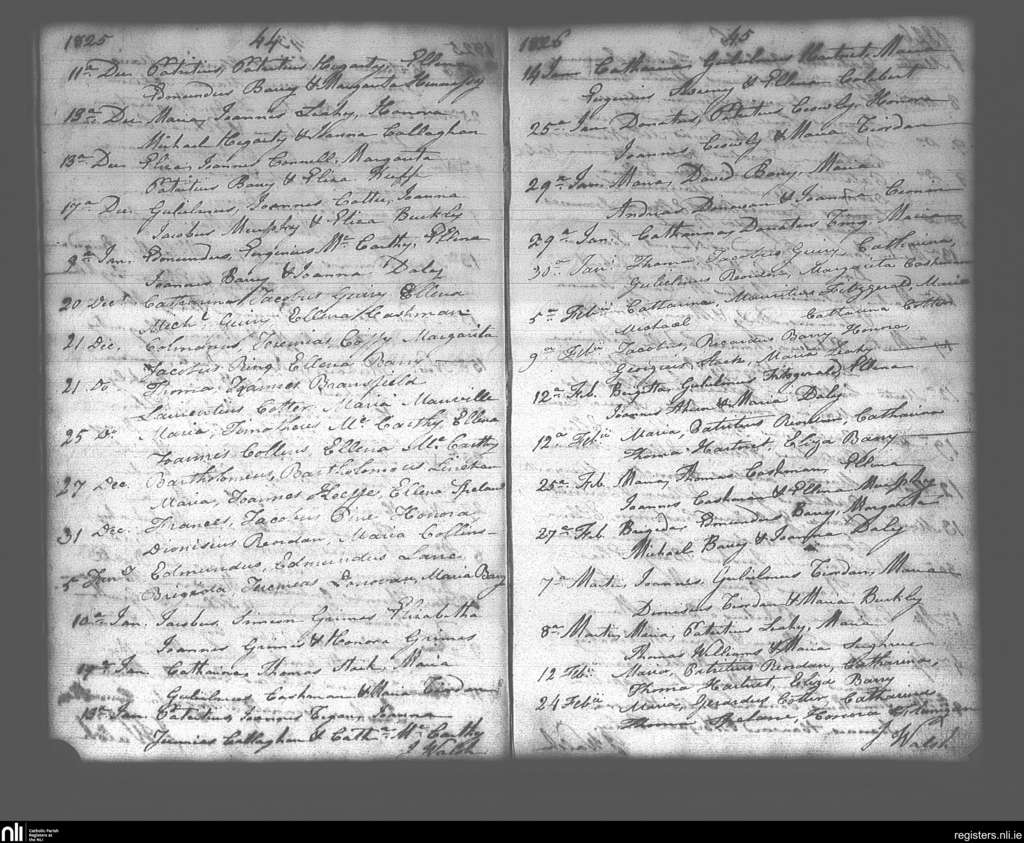 1825 44
11a Dec Patritius, Patritius Hegarty, Ellena
Edmundus Barry & Margarita Hennessy
13a Dec Maria, Joannes Leahy, Honora
Michael Hegarty & Joanna Callaghan
13a Dec Eliza, Joannes Connell, Margarita
Patritius Barry & Eliza
17a Dec Gulielmus, Joannes Cotter, Joanna
Jacobus Murphy & Eliza Buckly
9a Jan. Edmundus, Eugenius Mc Carthy, Ellena
Joannes Barry & Joanna Daly
20 Decr Catharina, Jacobus Guiry Ellena
Michl Guiry Ellena Cashman
21 Dec. Colmanus, Jeremias Margarita
Jacobus Ring Ellena Barry
21 Do Thoma Joannes Bransfield
Laurentius Cotter, Maria Manville
25 Do Maria, Timotheus Mc Carthy, Ellena
Joannes Collins, Ellena Mc Carthy
27 Dec. Bartholomeus, Bartholomeus Linehan
Maria, Joannes Keeffe, Ellena Ireland
31 Dec. Frances, Jacobus Pine Honora
Dionisius Reordan, Maria Collins
5a Jany Edmundus, Edmundus Lane
Brigida, Jeremias Donovan, Maria Barry
10a Jan. Jacobus, Simeon Grimes Elizabetha
Joannes Grimes & Honora Grimes
Jan. Catharina, Thomas Maria
Gulielmus Cashman & Maria Riordan
Jan. Patritius, Joannes Joanna
Jeremias Callaghan & Cathna Mc Carthy
J Walsh
1826 45
14 Jan Catharina, Gulielmus Hartnet, Maria
Eugenius & Ellena Colbert
25a Jan. Donatus, Patritius Crowly, Honora
Joannes Crowly & Maria Riordan
29a Jan. Maria, David Barry, Maria
Andreas & Joanna Cronin
29a Jan. Catharina, Donatus Maria
30a Jan. Thoma Jacobus Guiry Catharina
Gulielmus Reordan, Margarita Cashman
5a Feb Catharina, Mauritius Fitzgerald, Maria
Michael Catharina Cotter
9a Feb Jacobus, Ricardus Barry Honora,
Georgius Maria Leahy
12a Feb. Brigitta, Gulielmus Fitzgerald, Ellena
Joannes & Maria Daly
12a Feb Maria, Patritius Reordan, Catharina
Thoma Hartnet, Eliza Barry
25a Feb Maria, Thomas Cashman, Ellena
Joannes Cashman & Ellena Murphy
27a Feb Brigida, Edmundus Barry, Margarita
Michael Barry & Joanna Daly
7a Martii Joannes, Gulielmus Riordan, Maria
Dionisius Riordan & Maria Buckly
8a Martii, Maria, Patritius Leahy, Maria
Thomas Williams & Maria
12 Feb Maria, Patritius Reordan, Catharina,
Thoma Hartnet, Eliza Barry
24 Feb Maria, Gerardus Cotter Catharina
Thoma Honora
J Walsh
nli Catholic Parish
Registers at
the NLI
registers.nli.ie